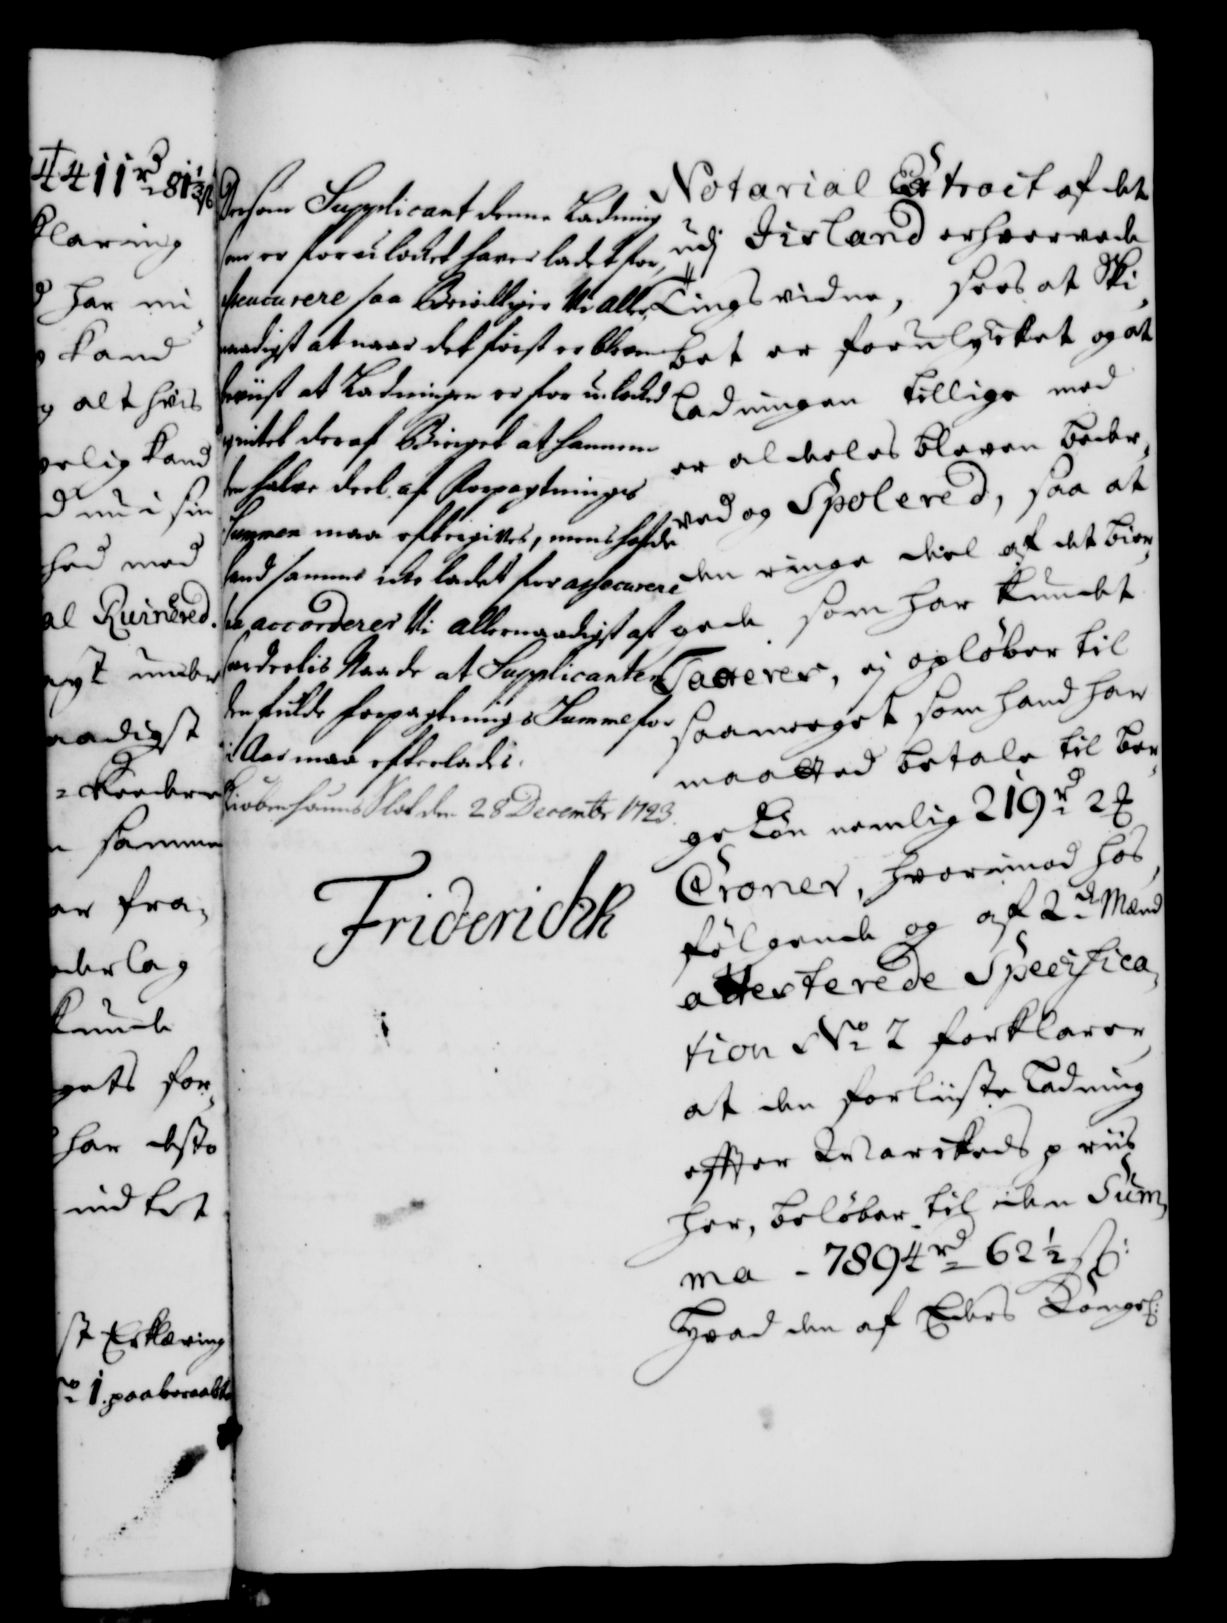 4411 rd 81½ ß
klaring
har mi
kand
alt hvis
velig kand
d nu i sin
hed med
al Ruinered.
under
naadigst
samme
fra
derlag
kunde
gets for
har dESto
st Erklæring
No 1. paaberaabte
Dersom Supplicant denne Ladning
som er forulücket haver ladet for,
assecurere saa Bevilliges Vi aller,
naadigst at naar det først er bleven
beviist at Ladningen er forulücked
og intet deraf Bierget at hannem
den halve deel af Forpagtnings
Summen maa eftergives, mens hafde
hand samme icke ladet for assecurere
da accorderer Vi allernaadigst af
særdeelis Naade at Supplicanten
den fulde forpagtnings Summe for
i Aar maa efterlades.
Kiøbenhauns Slot den 28 Decembr 1723.
Friderich R
Notarial Extract af det
udj Iisland erhvervede
Tingsvidne, sees at Ski,
bet er forulycket og at
Ladningen tillige med
er aldeeles bleven beder,
ved og Spolered, saa at
den ringe deel af det bier,
gede som har kundet
Taxeres, ej opløber til
saameget som hand har
maatted betale til ber,
ge Løn nemlig 219 rd 2 ₰
Croner, hvorimod hos,
følgende og af 2de Mænd
attesterede Specifica,
tion No 2 forklarer,
at den forliiste Ladning
efter Marckeds priis
her, beløber til den Sum,
ma - 7894 rd 62½ ß:
Hvad den af Eders Kongel: